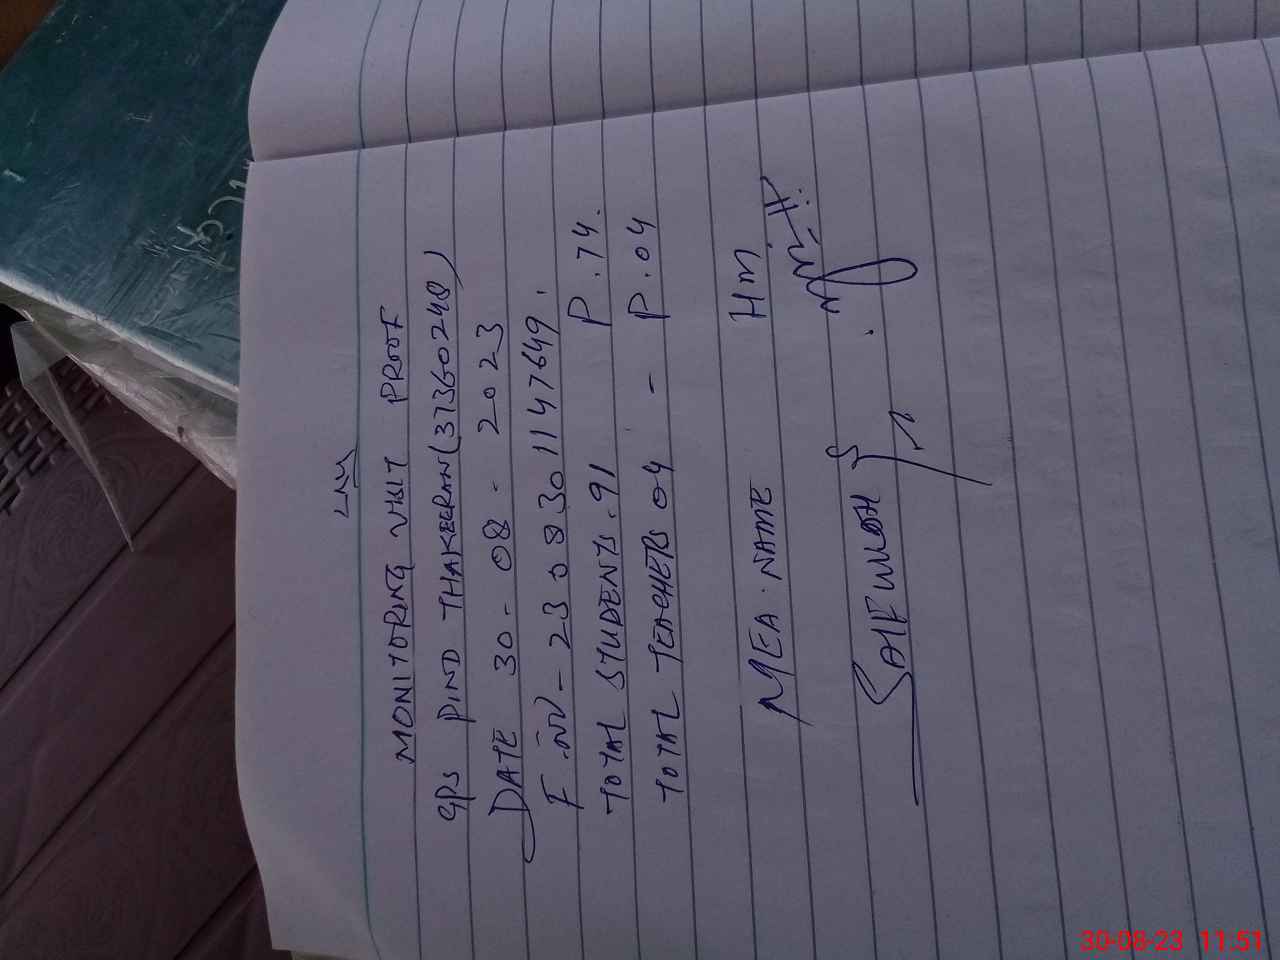 MONITORING VISIT PROOF
GPS PIND THAKEERAN (37360248)
DATE 30-08-2023
F.NO - 2308301147649.
TOTAL STUDENTS. 91 P. 74.
TOTAL TEACHERS 04 - P. 04
MEA. NAME HM
SAIF ULLAH
30-08-23 11:51